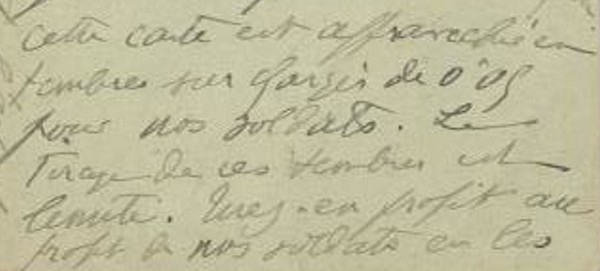 cette carte est affranchie en
timbres surchargés de 0'05
pour nos soldats. Le
Tirage de ces timbres est
limité. Tirez-en profit au
profit de nos soldats en les